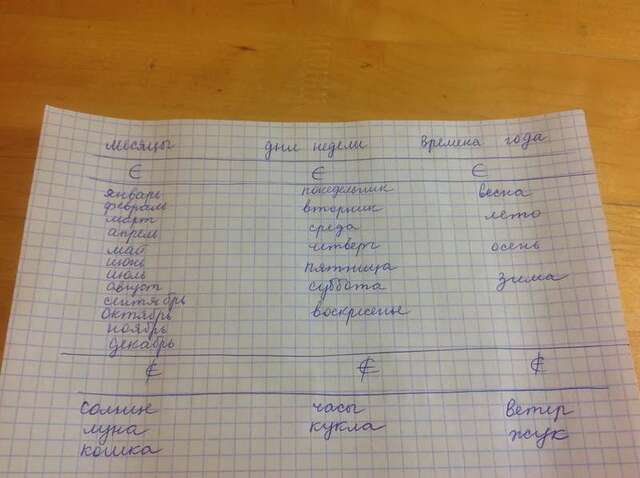 месяцы дни недели времена года
∈ ∈ ∈
январь понедельник весна
февраль вторник
март среда лето
апрель
май четверг осень
июнь пятница
июль
август суббота зима
сентябрь
октябрь воскресенье
ноябрь
декабрь
∉ ∉ ∉
солнце часы ветер
луна кукла жук
кошка